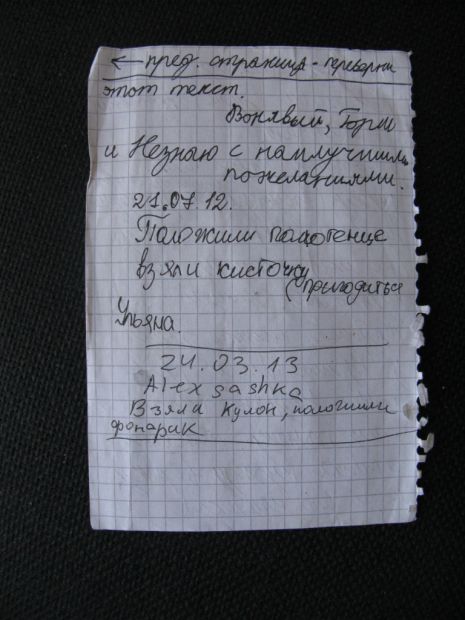 ← пред. страница - переверни
этот текст.
Вонявый, Горы
и Незнаю с наилучшими
пожеланиями.
21.07.12.
Положили полотенце
взяли кисточку
(пригодиться
Ульяна.
24.03.13
Alex sashka
Взяли кулон, положили
фонарик